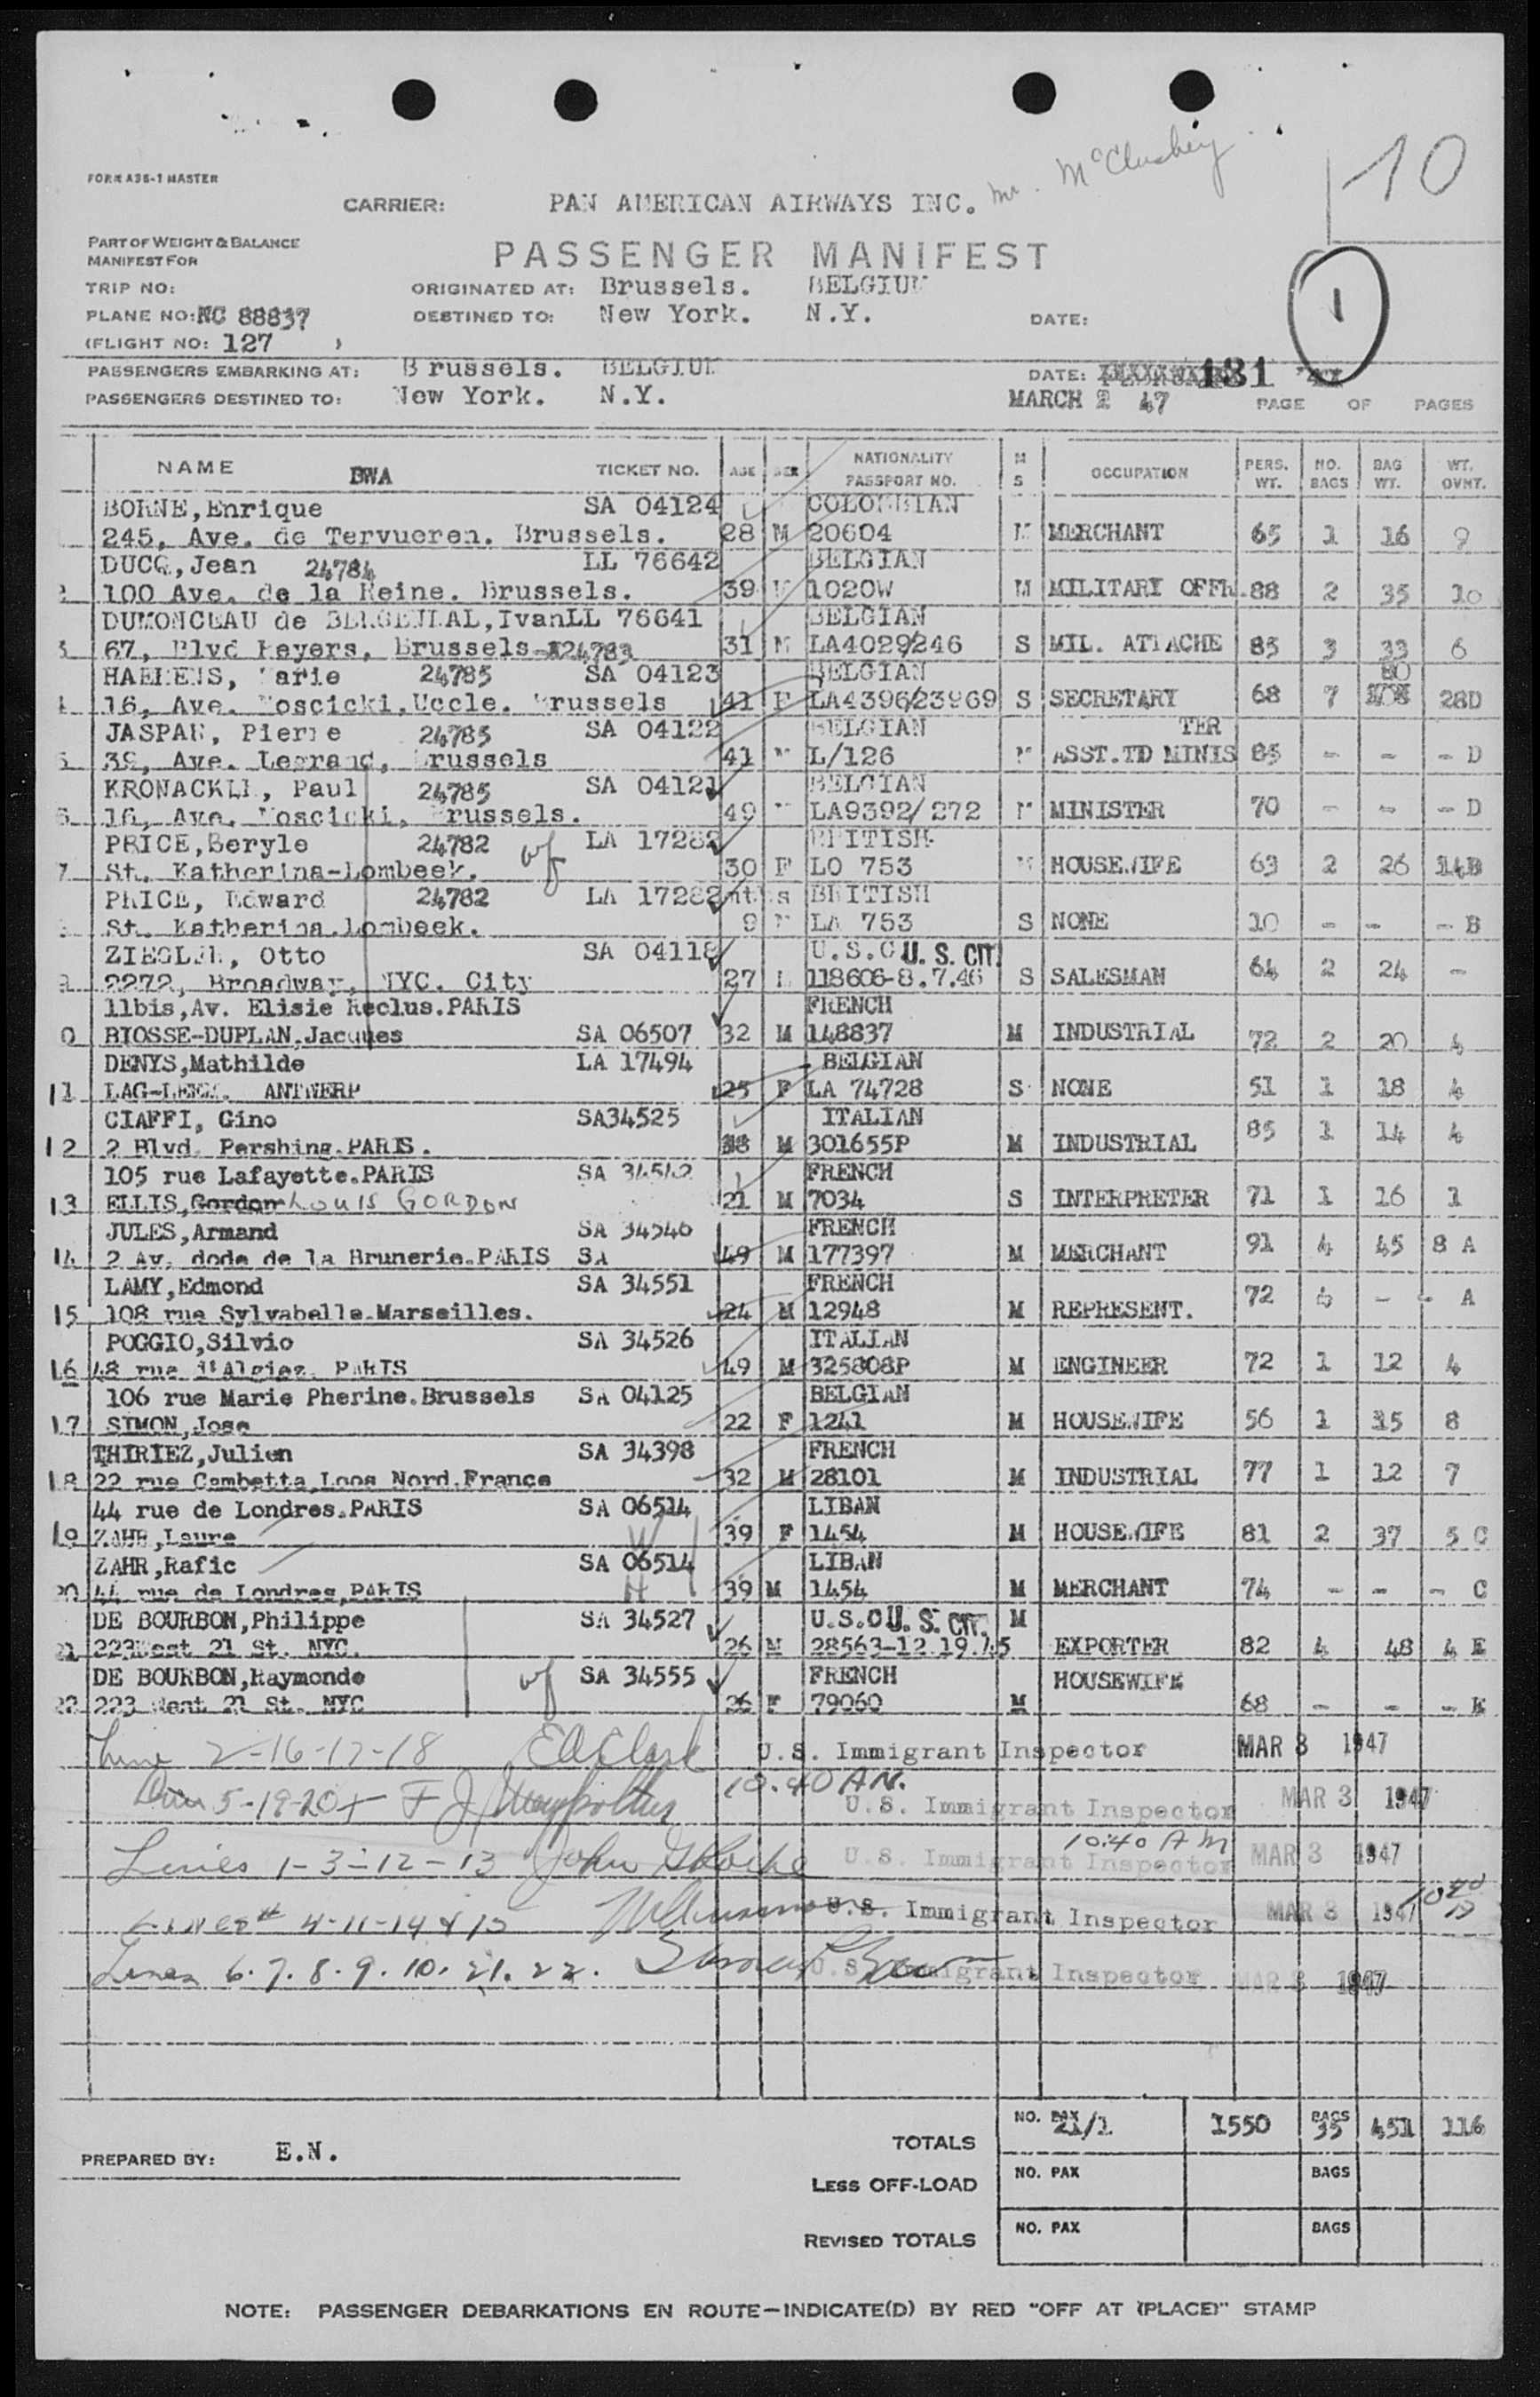 Mr. McCluskey
10
FORM A36-1 MASTER
CARRIER: PAN AMERICAN AIRWAYS INC.
PART OF WEIGHT & BALANCE
MANIFEST FOR
PASSENGER MANIFEST
1
TRIP NO: ORIGINATED AT: Brussels. BELGIUM
PLANE NO: NC 88837 DESTINED TO: New York. N.Y. DATE:
(FLIGHT NO: 127 )
PASSENGERS EMBARKING AT: Brussels. BELGIUM DATE: 181
PASSENGERS DESTINED TO: New York. N.Y. MARCH 2 47 PAGE OF PAGES
NAME BWA TICKET NO. AGE SEX NATIONALITY PASSPORT NO. M S OCCUPATION PERS. WT. NO. BAGS BAG WT. WT. OVHT.
BORNE,Enrique SA 04124 COLOMBIAN
245, Ave. de Tervueren. Brussels. 28 M 20604 M MERCHANT 65 1 16 9
DUCQ,Jean 24784 LL 76642 BELGIAN
2 100 Ave. de la Reine. Brussels. 39 M 1020W M MILITARY OFFR. 88 2 35 10
DUMONCEAU de BERGENDAL,Ivan LL 76641 BELGIAN
3 67, Blvd Reyers, Brussels 24783 31 M LA4029/246 S MIL. ATTACHE 85 3 33 6
HAEHENS, Marie 24785 SA 04123 BELGIAN 80
4 16, Ave. Moscicki.Uccle. Brussels 41 F LA4396/23969 S SECRETARY 68 7 28D
JASPAR, Pierre 24785 SA 04122 BELGIAN TER
5 39, Ave. Legrand, Brussels 41 M L/126 M ASST.TD MINIS 85 - - - D
KRONACKER, Paul 24785 SA 04121 BELGIAN
6 16, Ave. Moscicki, Brussels. 49 M LA9392/272 M MINISTER 70 - - - D
PRICE,Beryle 24782 wf LA 17282 BRITISH
7 St. Katherina-Lombeek. 30 F LO 753 M HOUSEWIFE 63 2 26 14B
PRICE, Edward 24782 LA 17282 mths BRITISH
8 St. Katherina.Lombeek. 9 M LA 753 S NONE 10 - - - B
ZIEGLER, Otto SA 04118 U.S.C U.S. CIT.
9 2272, Broadway, NYC. City 27 M 118606-8.7.46 S SALESMAN 64 2 24 -
11bis,Av. Elisie Reclus.PARIS FRENCH
0 BIOSSE-DUPLAN,Jacques SA 06507 32 M 148837 M INDUSTRIAL 72 2 20 4
DENYS,Mathilde LA 17494 BELGIAN
11 ANTWERP 25 F LA 74728 S NONE 51 1 18 4
CIAFFI, Gino SA34525 ITALIAN
12 2 Blvd. Pershing.PARIS. 38 M 301655P M INDUSTRIAL 85 1 14 4
105 rue Lafayette.PARIS SA 34542 FRENCH
13 ELLIS,Gordon LOUIS GORDON 21 M 7034 S INTERPRETER 71 1 16 1
JULES,Armand SA 34546 FRENCH
14 2 Av. dode de la Brunerie.PARIS SA 49 M 177397 M MERCHANT 91 4 45 8 A
LAMY,Edmond SA 34551 FRENCH
15 108 rue Sylvabelle.Marseilles. 24 M 12948 M REPRESENT. 72 4 - - A
POGGIO,Silvio SA 34526 ITALIAN
16 48 rue d'Algiez. PARIS 49 M 325808P M ENGINEER 72 1 12 4
106 rue Marie Pherine.Brussels SA 04125 BELGIAN
17 SIMON,Jose 22 F 1241 M HOUSEWIFE 56 1 15 8
THIRIEZ,Julien SA 34398 FRENCH
18 22 rue Gambetta,Loos Nord.France 32 M 28101 M INDUSTRIAL 77 1 12 7
44 rue de Londres.PARIS SA 06514 LIBAN
19 ZAHR,Laure W 39 F 1454 M HOUSEWIFE 81 2 37 5 C
ZAHR,Rafic SA 06514 LIBAN
20 44 rue de Londres,PARIS H 39 M 1454 M MERCHANT 74 - - - C
DE BOURBON,Philippe SA 34527 U.S.C U.S. CIT. M
21 223West 21 St. NYC. 26 M 28563-12.19.45 EXPORTER 82 4 48 4 E
DE BOURBON,Raymonde wf SA 34555 FRENCH HOUSEWIFE
22 223 West 21 St. NYC 26 F 79060 M 68 - - - E
Line 2-16-17-18 EA Clark U.S. Immigrant Inspector MAR 3 1947
5-19-20 F J 10.40 AM. U.S. Immigrant Inspector MAR 3 1947
Lines 1-3-12-13 John G Roche U.S. Immigrant Inspector 10:40 AM MAR 3 1947
Lines # 4-11-14 & 15 U.S. Immigrant Inspector MAR 3 1947 10 40
Lines 6.7.8.9.10.21.22. U.S. Immigrant Inspector MAR 3 1947
PREPARED BY: E.N. TOTALS NO. PAX 21/1 1550 BAGS 35 451 116
LESS OFF-LOAD NO. PAX BAGS
REVISED TOTALS NO. PAX BAGS
NOTE: PASSENGER DEBARKATIONS EN ROUTE—INDICATE(D) BY RED "OFF AT (PLACE)" STAMP